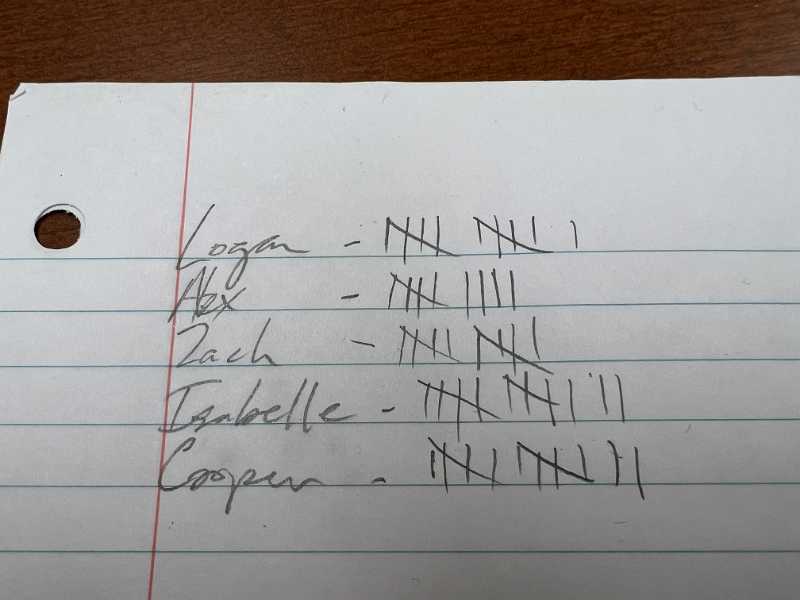 Logan - 𝍸 𝍸 |
Alex - 𝍸 ||||
Zach - 𝍸 𝍸
Isabelle - 𝍸 𝍸 |||
Cooper - 𝍸 𝍸 ||